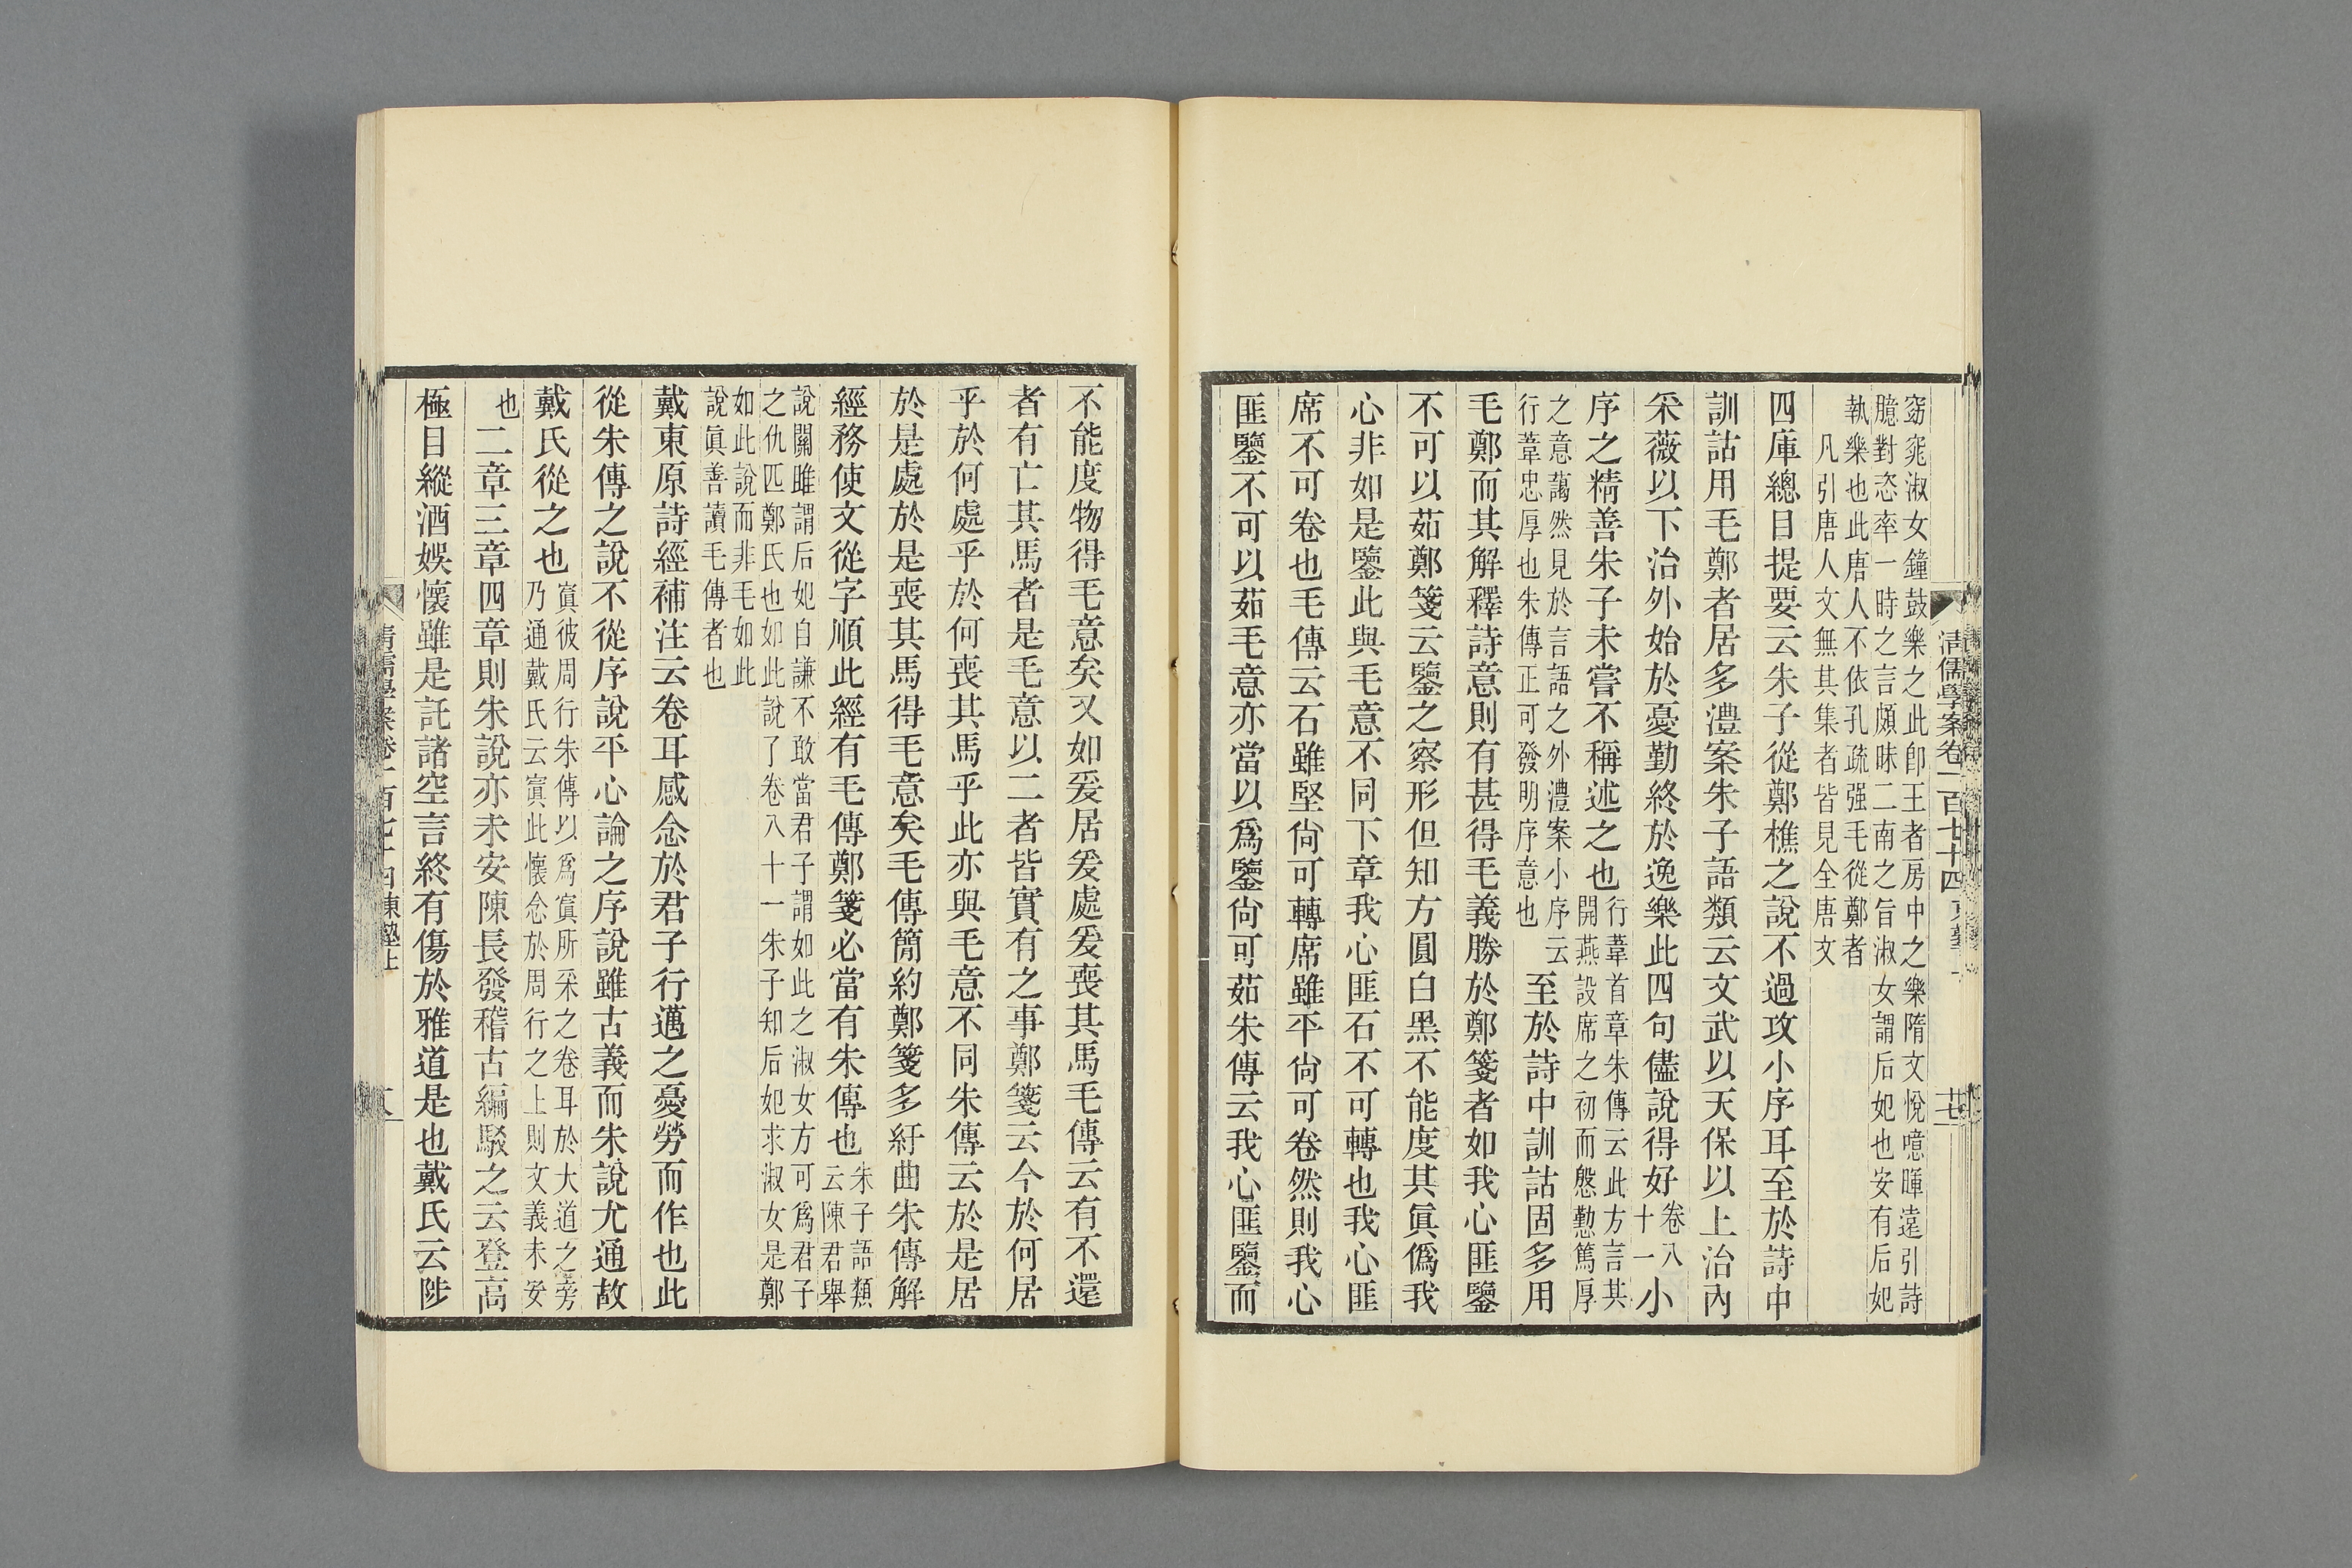 清儒學案卷一百七十四
窈窕淑女鐘鼓樂之此卽王者房中之樂隋文悅噫暉遠引詩
臆對恣率一時之言頗昧二南之旨淑女謂后妃也安有后妃
執樂也此唐人不依孔疏强毛從鄭者
凡引唐人文無其集者皆見全唐文
四庫總目提要云朱子從鄭樵之說不過攻小序耳至於詩中
訓詁用毛鄭者居多澧案朱子語類云文武以天保以上治內
采薇以下治外始於憂勤終於逸樂此四句儘說得好
卷八
十一
小
序之精善朱子未嘗不稱述之也
行葦首章朱傳云此方言其
開燕設席之初而慇懃篤厚
之意藹然見於言語之外澧案小序云
行葦忠厚也朱傳正可發明序意也
至於詩中訓詁固多用
毛鄭而其解釋詩意則有甚得毛義勝於鄭箋者如我心匪鑒
不可以茹鄭箋云鑒之察形但知方圓白黑不能度其眞僞我
心非如是鑒此與毛意不同下章我心匪石不可轉也我心匪
席不可卷也毛傳云石雖堅尙可轉席雖平尙可卷然則我心
匪鑒不可以茹毛意亦當以爲鑒尙可茹朱傳云我心匪鑒而
不能度物得毛意矣又如爰居爰處爰喪其馬毛傳云有不還
者有亡其馬者是毛意以二者皆實有之事鄭箋云今於何居
乎於何處乎於何喪其馬乎此亦與毛意不同朱傳云於是居
於是處於是喪其馬得毛意矣毛傳簡約鄭箋多紆曲朱傳解
經務使文從字順此經有毛傳鄭箋必當有朱傳也
朱子語類
云陳君舉
說關雎謂后妃自謙不敢當君子謂如此之淑女方可爲君子
之仇匹鄭氏也如此說了卷八十一朱子知后妃求淑女是鄭
如此說而非毛如此
說眞善讀毛傳者也
戴東原詩經補注云卷耳感念於君子行邁之憂勞而作也此
從朱傳之說不從序說平心論之序說雖古義而朱說尤通故
戴氏從之也
寘彼周行朱傳以爲寘所采之卷耳於大道之旁
乃通戴氏云寘此懷念於周行之上則文義未安
也
二章三章四章則朱說亦未安陳長發稽古編駁之云登高
極目縱酒娛懷雖是託諸空言終有傷於雅道是也戴氏云陟